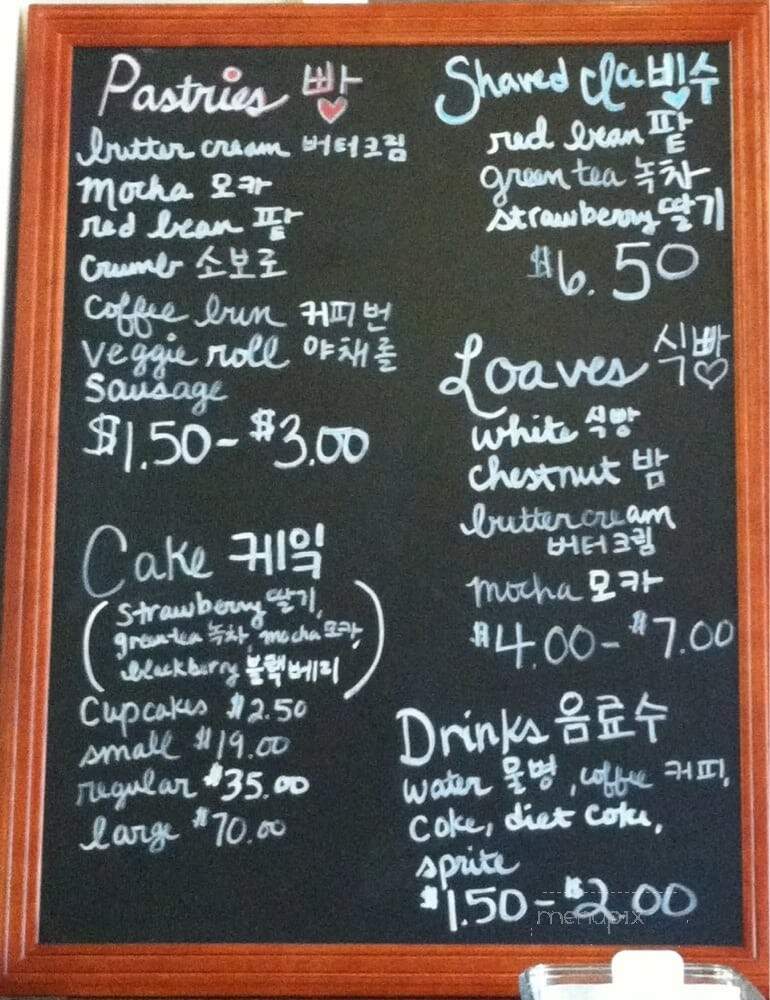 Pastries 빵
butter cream 버터크림
mocha 모카
red bean 팥
crumb 소보로
coffee bun 커피번
veggie roll 야채롤
Sausage
$1.50 - $3.00
Cake 케익
(strawberry 딸기,
green tea 녹차, mocha 모카,
blackberry 블랙베리)
Cupcakes $2.50
small $19.00
regular $35.00
large $70.00
Shaved Ice 빙수
red bean 팥
green tea 녹차
strawberry 딸기
$6.50
Loaves 식빵
white 식빵
chestnut 밤
buttercream
버터크림
mocha 모카
$4.00 - $7.00
Drinks 음료수
water 물병, coffee 커피,
coke, diet coke,
sprite
$1.50 - $2.00
menupix